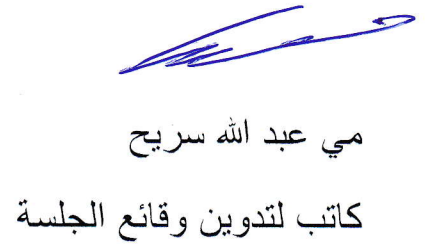 مي عبد الله سريح
كاتب لتدوين وقائع الجلسة